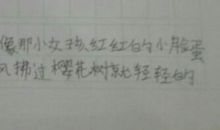 像那小女孩红红的小脸蛋
风拂过樱花树就轻轻的